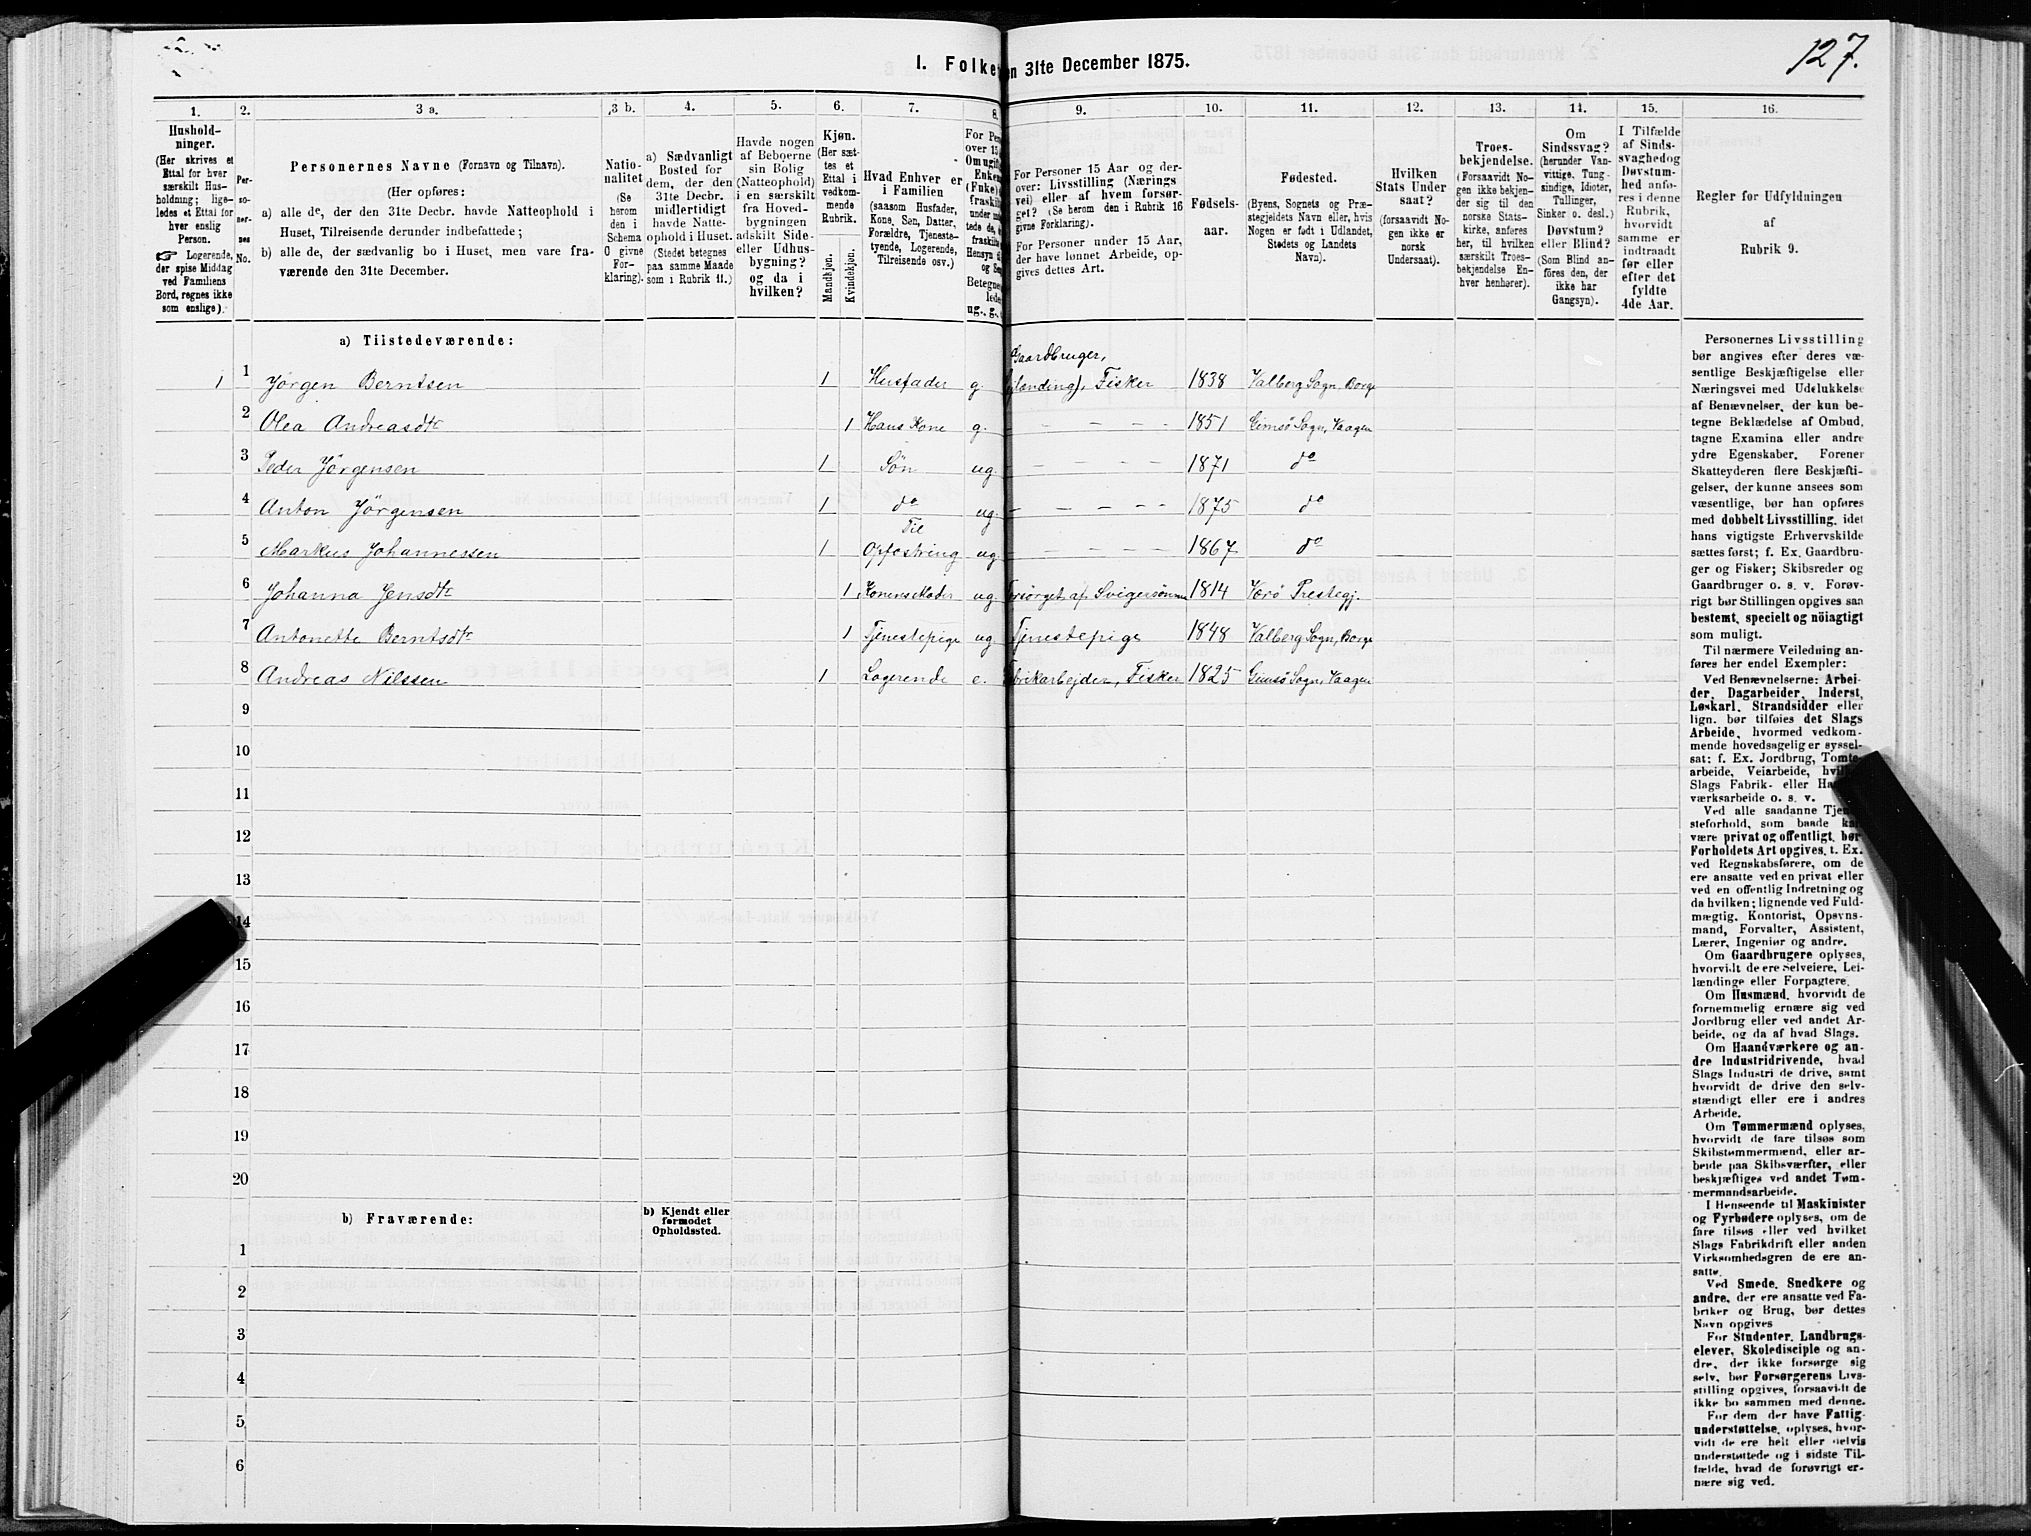 127.
I. Folke
n 31te December 1875.
1. 2. 3 a. 3 b. 4. 5. 6. 7. 8. 9. 10. 11. 12. 13. 14. 15. 16.
Hushold-
ninger.
(Her skrives et
Ettal for hver
særskilt Hus-
holdning; lige-
ledes et Ettal for
hver enslig
Person.
☞ Logerende,
der spise Middag
ved Familiens
Bord, regnes ikke
som enslige).
Per-
so-
ner-
nes
No.
Personernes Navne (Fornavn og Tilnavn).
(Her opføres:
a) alle de, der den 31te Decbr. havde Natteophold i
Huset, Tilreisende derunder indbefattede;
b) alle de, der sædvanlig bo i Huset, men vare fra-
værende den 31te December.
Natio-
nalitet
(Se
herom
den i
Schema
0 givne
For-
klaring).
a) Sædvanligt
Bosted for
dem, der den
31te Decbr.
midlertidigt
havde Natte-
ophold i Huset.
(Stedet betegnes
paa samme Maade
som i Rubrik 11.)
Havde nogen
af Beboerne
sin Bolig
(Natteophold)
i en særskilt
fra Hoved-
bygningen
adskilt Side-
eller Udhus-
bygning?
og da i
hvilken?
Kjøn.
(Her sæt-
tes et
Ettal i
vedkom-
mende
Rubrik.
Mandkjøn.
Kvindekjøn.
Hvad Enhver er
i Familien
(saasom Husfader,
Kone, Søn, Datter,
Forældre, Tjeneste-
tyende, Logerende,
Tilreisende osv.)
For Pers
over 15
Om ugift
Enken
(Fnke)
fraskil
under ind
tede de,
fraskilte
Hensyn
og Se
Betegne
lede
ug., g.,
For Personer 15 Aar og der-
over: Livsstilling (Nærings
vei) eller af hvem forsør-
get? (Se herom den i Rubrik 16
givne Forklaring).
For Personer under 15 Aar,
der have lønnet Arbeide, op-
gives dettes Art.
Fødsels-
aar.
Fødested.
(Byens, Sognets og Præ-
stegjeldets Navn eller, hvis
Nogen er født i Udlandet,
Stedets og Landets
Navn).
Hvilken
Stats Under
saat?
(forsaavidt No-
gen ikke er
norsk
Undersaat).
Troes-
bekjendelse.
(Forsaavidt No-
gen ikke bekjen-
der sig til den
norske Stats-
kirke, anføres
her, til hvilken
særskilt Troes-
bekjendelse En-
hver henhører).
Om
Sindssvag?
(herunder Van-
vittige, Tung-
sindige, Idioter,
Tullinger,
Sinker o. desl.)
Døvstum?
eller Blind?
(Som Blind an-
føres den, der
ikke har
Gangsyn).
I Tilfælde
af Sinds-
svaghed og
Døvstum-
hed anfø-
res i denne
Rubrik,
hvorvidt
samme er
indtraadt
før eller
efter det
fyldte
4de Aar.
Regler for Udfyldningen
af
Rubrik 9.
a) Tilstedeværende:
Gaardbruger,
1 1 Jørgen Berntsen 1 Husfader g. Fisker 1838 Valberg Sogn, Borge
2 Olea Andreasdtr 1 Hans Kone g. — — — — 1851 Gimsø Sogn, Vaagen
3 Peder Jørgensen 1 Søn ug. — — — — 1871 do
4 Anton Jørgensen 1 do ug. — — — — 1875 do
Til
5 Markus Johannessen 1 Opfostring ug. — — — — 1867 do
6 Johanna Jensdtr 1 Konens Moder ug. Forsørget af Svigersønnen 1814 Værø Prestegj.
7 Antonette Berntsdtr 1 Tjenestepige ug. Tjenestepige 1848 Valberg Sogn, Borge
8 Andreas Nilssen 1 Logerende e. Fabrikarbejder, Fisker 1825 Gimsø Sogn, Vaagen
9
10
11
12
13
14
15
16
17
18
19
20
b) Fraværende:
b) Kjendt eller
formodet
Opholdssted.
1
2
3
4
5
6
Personernes Livsstilling
bør angives efter deres væ-
sentlige Beskjæftigelse eller
Næringsvei med Udelukkelse
af Benævnelser, der kun be-
tegne Beklædelse af Ombud,
tagne Examina eller andre
ydre Egenskaber. Forener
Skatteyderen flere Beskjæfti-
gelser, der kunne ansees som
væsentlige, bør han opføres
med dobbelt Livsstilling, idet
hans vigtigste Erhvervskilde
sættes først; f. Ex. Gaardbru-
ger og Fisker; Skibsreder og
Gaardbruger o. s. v. Forøv-
rigt bør Stillingen opgives saa
bestemt, specielt og nøiagtigt
som muligt.
Til nærmere Veiledning an-
føres her endel Exempler:
Ved Benævnelserne: Arbei-
der, Dagarbeider, Inderst,
Løskarl, Strandsidder eller
lign. bør tilføies det Slags
Arbeide, hvormed vedkom-
mende hovedsagelig er syssel-
sat; f. Ex. Jordbrug, Tomte-
arbeide, Veiarbeide, hvil
Slags Fabrik- eller Ha
værksarbeide o. s. v.
Ved alle saadanne Tjen
steforhold, som baade ka
være privat og offentligt, bør
Forholdets Art opgives, t. Ex.
ved Regnskabsførere, om de
ere ansatte ved en privat eller
ved en offentlig Indretning og
da hvilken; lignende ved Fuld-
mægtig, Kontorist, Opsyns-
mand, Forvalter, Assistent,
Lærer, Ingeniør og andre.
Om Gaardbrugere oplyses,
hvorvidt de ere Selveiere, Lei-
lændinge eller Forpagtere.
Om Husmænd, hvorvidt de
fornemmelig ernære sig ved
Jordbrug eller ved andet Ar-
beide, og da af hvad Slags.
Om Haandværkere og an-
dre Industridrivende, hvad
Slags Industri de drive, samt
hvorvidt de drive den selv-
stændigt eller ere i andres
Arbeide.
Om Tømmermænd oplyses,
hvorvidt de fare tilsøs som
Skibstømmermænd, eller ar-
beide paa Skibsværfter, eller
beskjæftiges ved andet Tøm-
mermandsarbeide.
I Henseende til Maskinister
og Fyrbødere oplyses, om de
fare tilsøs eller ved hvilket
Slags Fabrikdrift eller anden
Virksomhedsgren de ere an-
satte.
Ved Smede, Snedkere og
andre, der ere ansatte ved Fa-
briker og Brug, bør dettes
Navn opgives
For Studenter, Landbrugs-
elever, Skoledisciple og an-
dre, der ikke forsørge sig
selv, bør Forsørgerens Livs-
stilling opgives, forsaavidt de
ikke bo sammen med denne.
For dem der have Fattig-
understøttelse, oplyses, hvor-
vidt de ere helt eller delvis
understøttede og i sidste Til-
fælde, hvad de forøvrigt er-
nære sig ved.